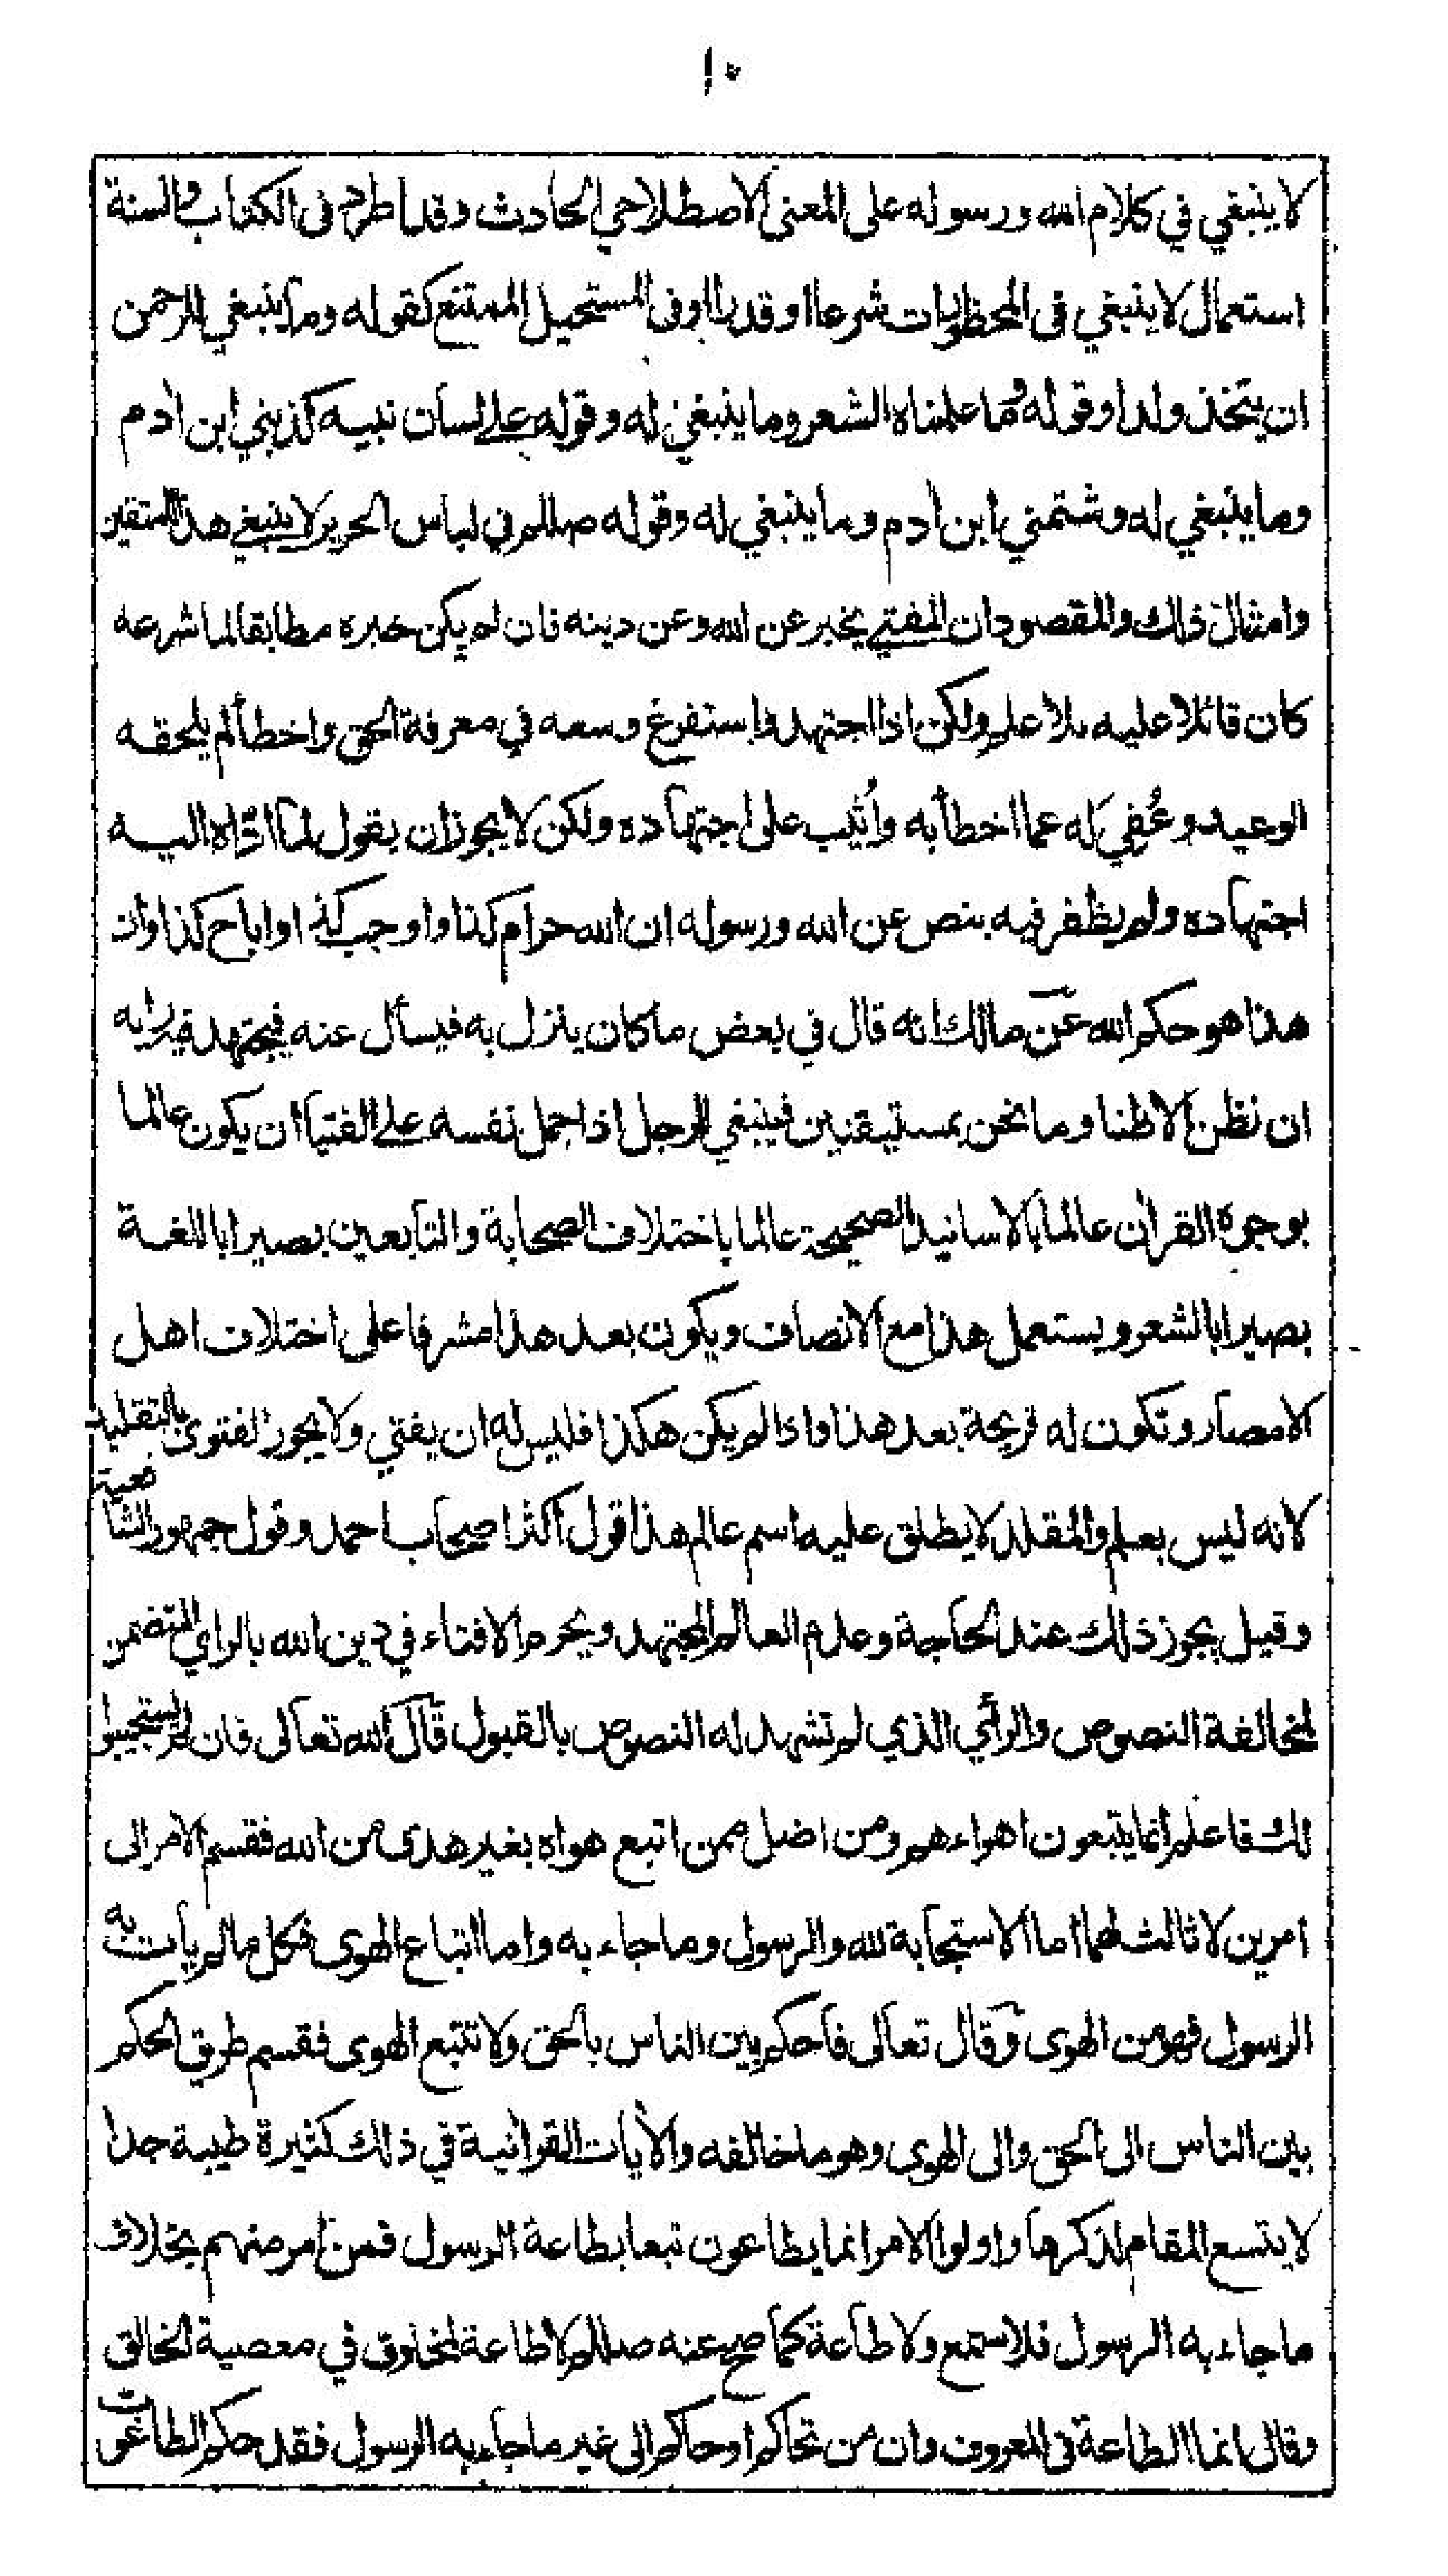 ١٠
لا ينبغي في كلام الله ورسوله على المعنى الاصطلاحي الحادث وقد اطرد فى الكتاب والسنة
استعمال لا ينبغي فى المحظورات شرعا او قدرا اوفى المستحيل الممتنع كقوله وما ينبغي للرحمن
ان يتخذ ولدا وقوله وما علمناه الشعر وما ينبغي له وقوله على لسان نبيه كذبني ابن ادم
وما ينبغي له وشتمني ابن ادم وما ينبغي له وقوله صللم في لباس الحرير لا ينبغي هذا للمتقين
وامثال ذلك والمقصود ان المفتي يخبر عن الله وعن دينه فان لم يكن خبره مطابقا لما شرعه
كان قائلا عليه بلا علم ولكن اذا اجتهد واستفرغ وسعه في معرفة الحق واخطأ لم يلحقه
الوعيد وعُفِيَ له عما اخطأ به وأثيب على اجتهاده ولكن لا يجوز ان يقول لما اداه اليه
اجتهاده ولم يظفر فيه بنص عن الله ورسوله ان الله حرام كذا واوجب كذا او اباح كذا وان
هذا هو حكم الله عن مالك انه قال في بعض ما كان ينزل به فيسأل عنه فيجتهد فيه رايه
ان نظن الا ظنا وما نحن بمستيقنين فينبغي الرجل اذا حمل نفسه على الفتيا ان يكون عالما
بوجوه القرأن عالما بالاسانيد الصحيحة عالما باختلاف الصحابة والتابعين بصيرا باللغة
بصيرا بالشعر ويستعمل هذا مع الانصاف ويكون بعد هذا مشرفا على اختلاف اهل
الامصار وتكون له قريحة بعد هذا واذا لم يكن هكذا فليس له ان يفتي ولا يجوز الفتوى بالتقليد
لانه ليس بعلم والمقلد لا يطلق عليه اسم عالم هذا قول اكثر اصحاب احمد وقول جمهور الشافعية
وقيل يجوز ذلك عند الحاجة وعدم العالم المجتهد ويحرم الافتاء في دين الله بالراي المتضمن
لمخالفة النصوص والرأي الذي لم تشهد له النصوص بالقبول قال الله تعالى فان لم يستجيبوا
لك فاعلم انما يتبعون اهواءهم ومن اضل ممن اتبع هواه بغير هدى من الله فقسم الامر الى
امرين لا ثالث لهما اما الاستجابة لله والرسول وما جاء به واما اتباع الهوى فكل ما لم يأت به
الرسول فهو من الهوى وقال تعالى فاحكم بين الناس بالحق ولا تتبع الهوى فقسم طريق الحكم
بين الناس الى الحق والى الهوى وهو ما خالفه والأيات القرأنية في ذلك كثيرة طيبة جدا
لا يتسع المقام لذكرها واولوا الامر انما يطاعون تبعا بطاعة الرسول فمن امر منهم بخلاف
ما جاء به الرسول فلا سمع ولا طاعة كما صح عنه صللم لا طاعة لمخلوق في معصية الخالق
وقال انما الطاعة فى المعروف وان من تحاكم او حاكم الى غير ما جاء به الرسول فقد حكم الطاغوت